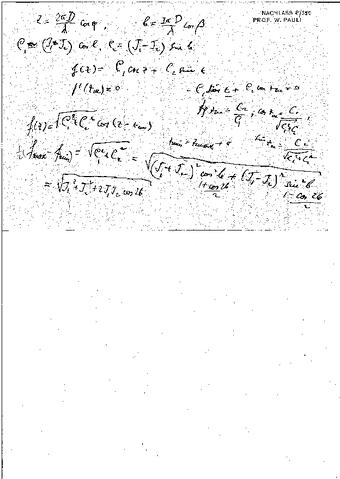 NACHLASS P/350
PROF. W. PAULI
z = 2πD/λ cos φ, b = 2πD/λ cos β
C₁ = (J₁+J₂) cos b, C₂ = (J₁-J₂) sin b
f(z) = C₁ cos z + C₂ sin z
f'(z_m) = 0 - C₁ sin z + C₂ cos z_m = 0
tg z_m = C₂/C₁, cos z_m = C₁/√(C₁²+C₂²),
f(z) = √(C₁²+C₂²) cos (z - z_m)
sin z_m = C₂/√(C₁²+C₂²)
½(f_max - f_min) = √(C₁²+C₂²) = √((J₁+J₂)² cos² b + (J₁-J₂)² sin² b)
1+cos 2b/2 1-cos 2b/2
= √(J₁²+J₂²+2J₁J₂ cos 2b)